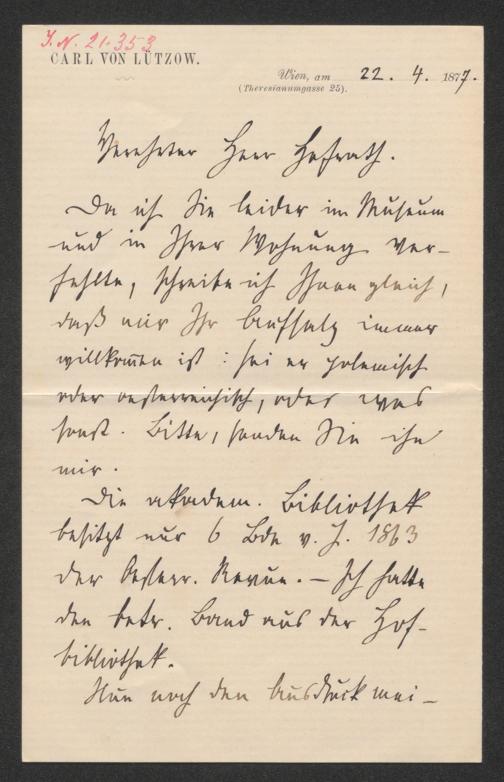 J. N. 21.353
CARL VON LÜTZOW.
Wien, am 22. 4. 1877.
(Theresianumgasse 25).
Verehrter Herr Hofrath.
Da ich Sie leider im Museum
und in Ihrer Wohnung ver-
fehlte, schreibe ich Ihnen gleich,
daß mir Ihr Aufsatz immer
willkom̅en ist : sei er polemisch
oder oesterreichisch, oder was
sonst. Bitte, senden Sie ihn
mir.
Die akadem. Bibliothek
besitzt nur 6 Bde v. J. 1863
der Oesterr. Revue. – Ich hatte
den betr. Band aus der Hof-
bibliothek.
Nun noch den Ausdruck mei-